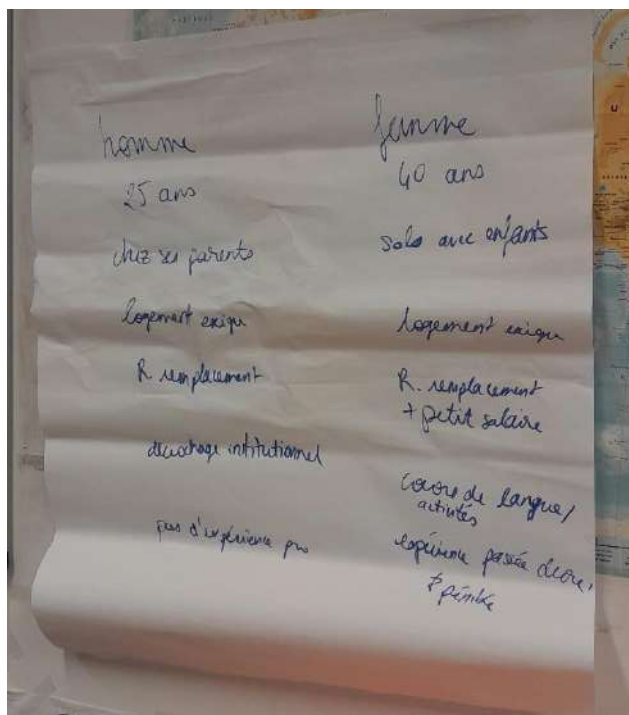 homme
25 ans
chez ses parents
logement exigu
R. remplacement
décrochage institutionnel
pas d'expérience pro
femme
40 ans
solo avec enfants
logement exigu
R. remplacement
+ petit salaire
cours de langue/
activités
expérience passée
pénible